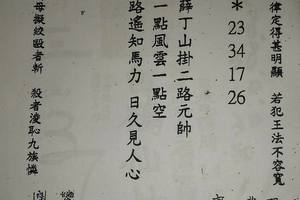 律定得甚明顯 若犯王法不容寬
* 23 34 17 26
薛丁山掛二路元帥
一點風雲一點空
路遙知馬力 日久見人心
母擬絞毆者斬 殺者凌恥九族憐